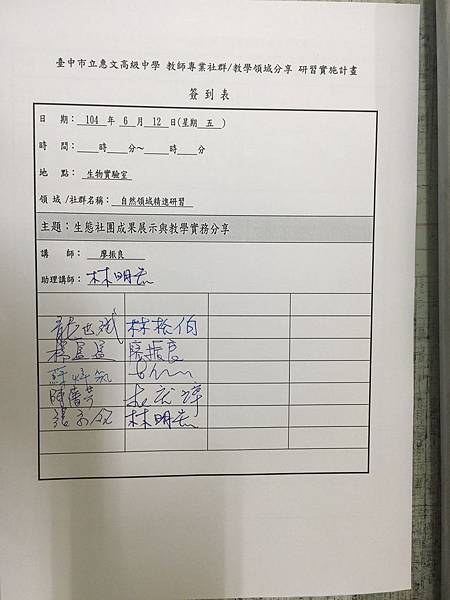 臺中市立惠文高級中學 教師專業社群/教學領域分享 研習實施計畫
簽 到 表
日 期: 104 年 6 月 12 日(星期 五 )
時 間: 時 分~ 時 分
地 點: 生物實驗室
領 域 /社群名稱: 自然領域精進研習
主題:生態社團成果展示與教學實務分享
講 師: 廖振良
助理講師: 林明宏
林裕伯
廖振良
林明宏